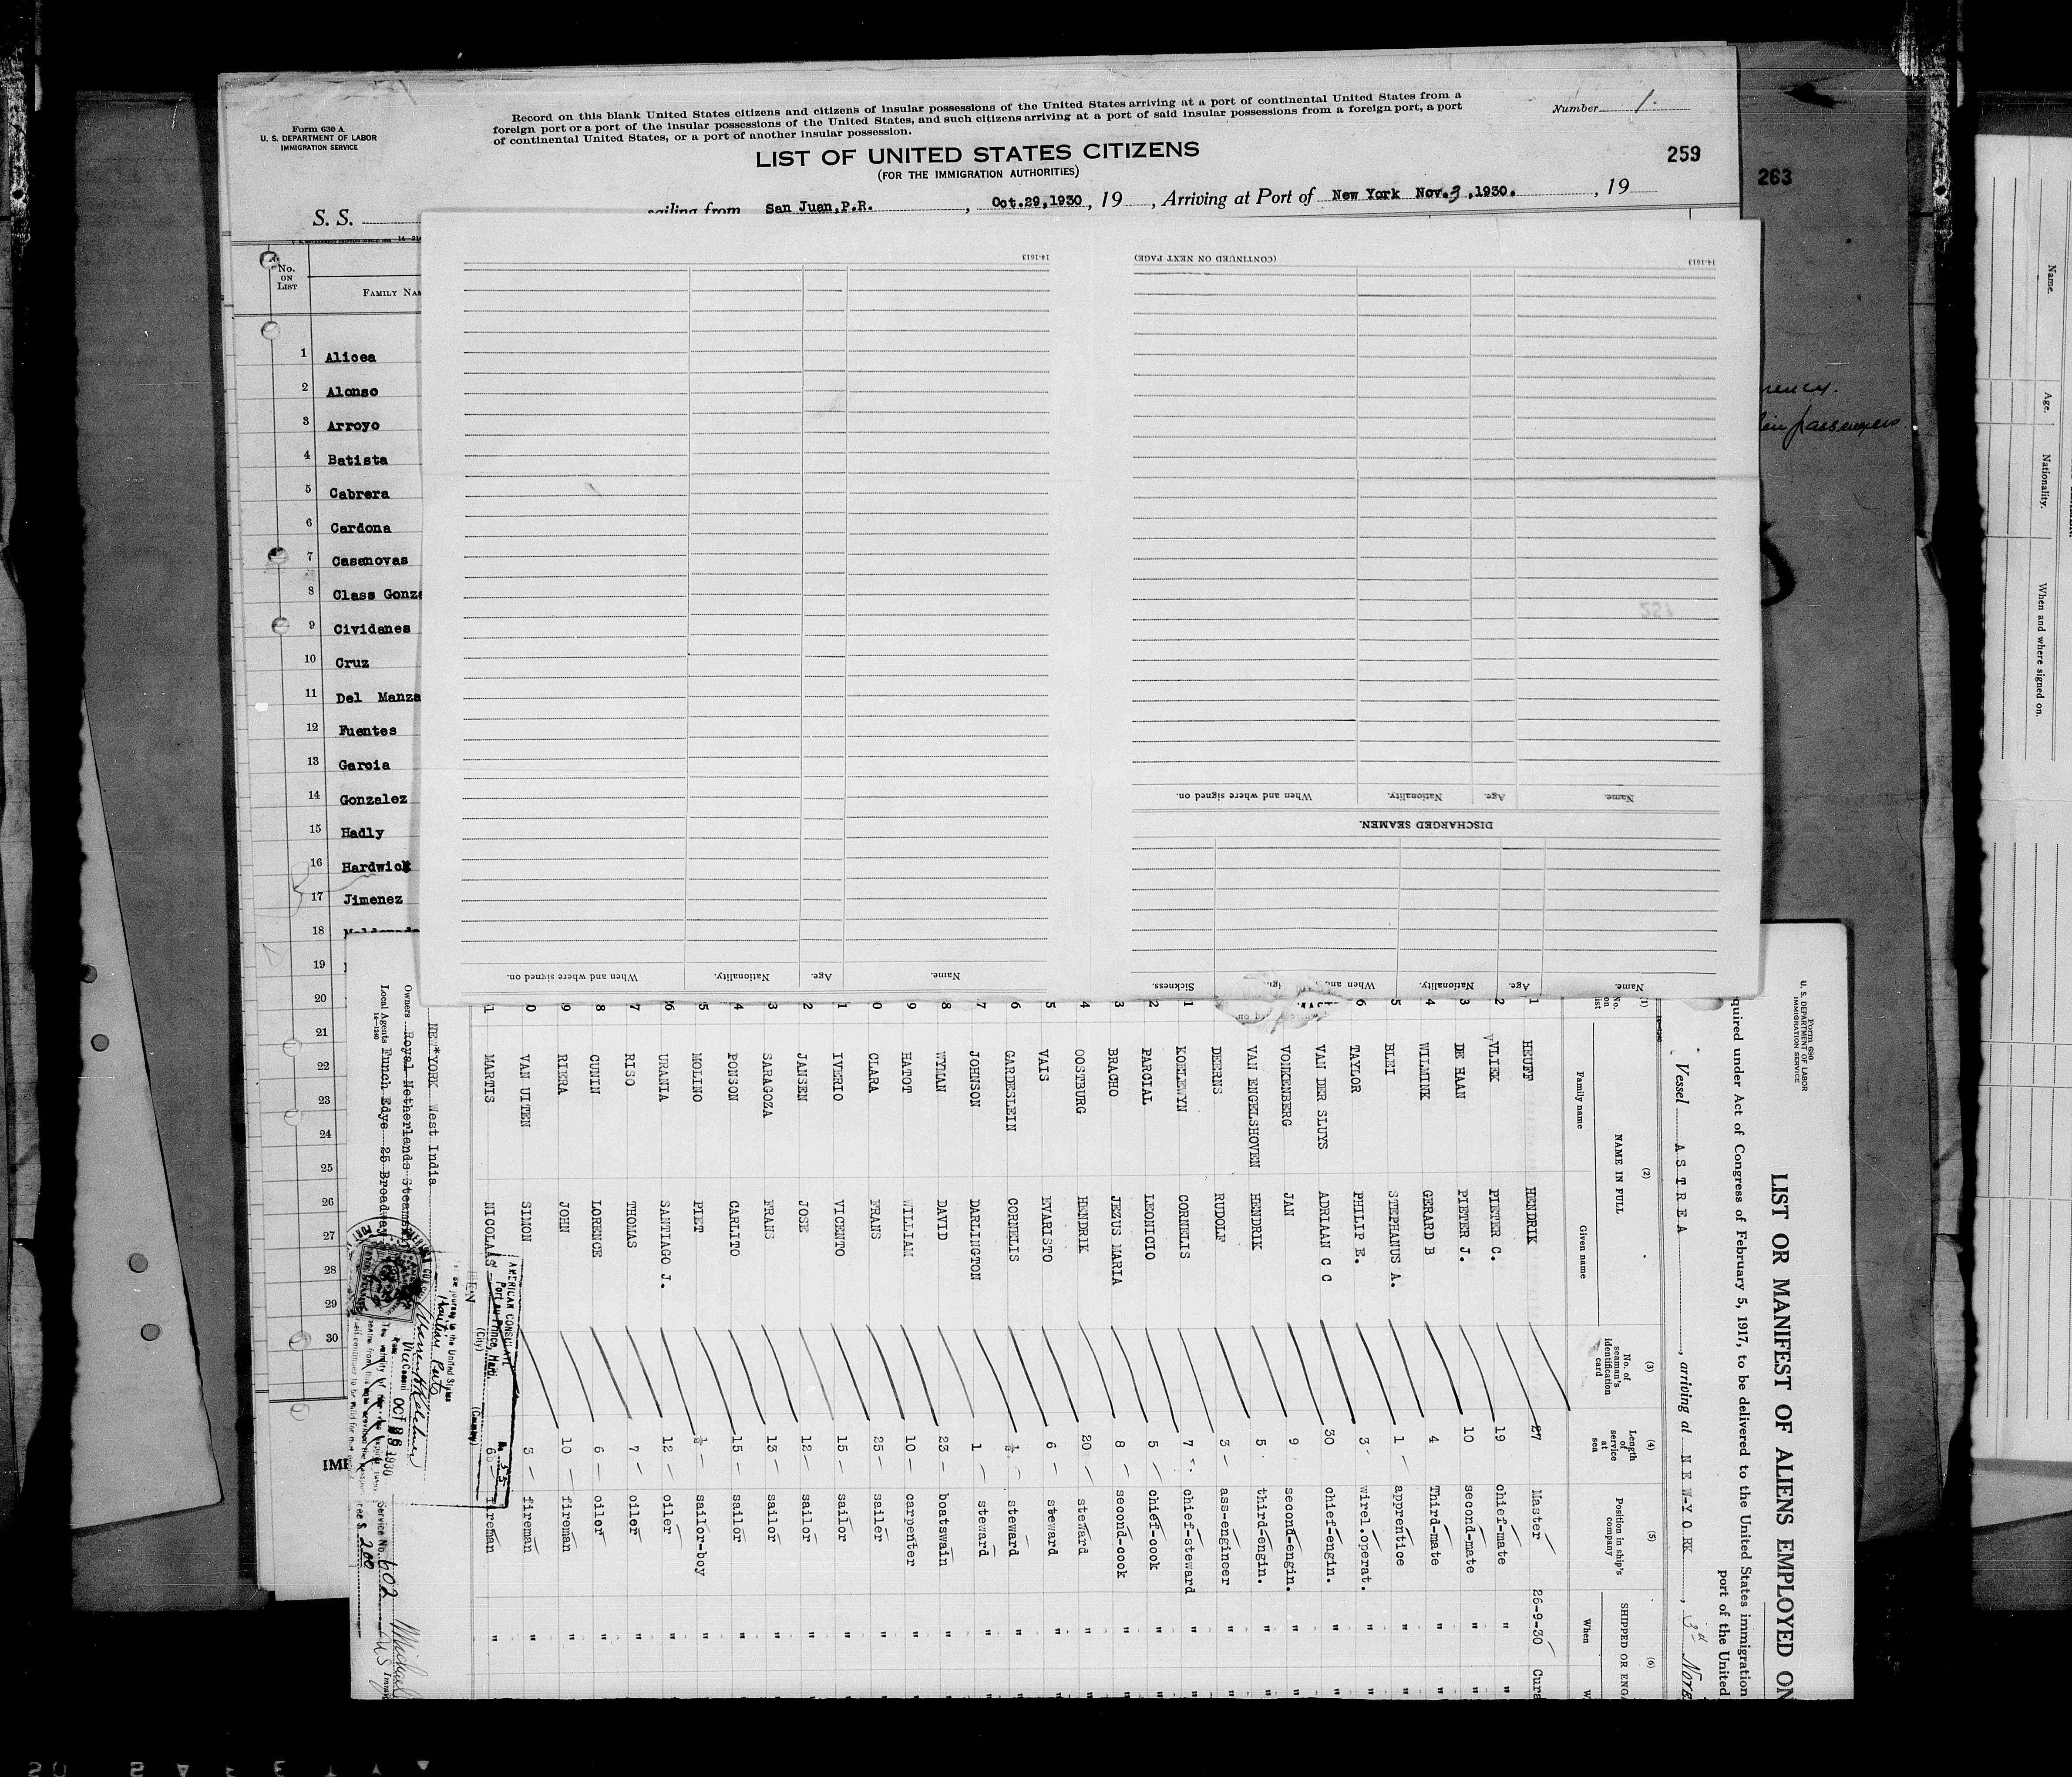 Form 630 A
U. S. DEPARTMENT OF LABOR
IMMIGRATION SERVICE
Record on this blank United States citizens and citizens of insular possessions of the United States arriving at a port of continental United States from a
foreign port or a port of the insular possessions of the United States, and such citizens arriving at a port of said insular possessions from a foreign port, a port
of continental United States, or a port of another insular possession.
Number 1.
LIST OF UNITED STATES CITIZENS
(FOR THE IMMIGRATION AUTHORITIES)
259
263
S. S. sailing from San Juan,P.R. , Oct.29,1930 , 19 , Arriving at Port of New York Nov.3,1930. , 19
No. ON LIST
1 Alicea
2 Alonso
3 Arroyo
4 Batista
5 Cabrera
6 Cardona
7 Casanovas
8 Class
9 Cividanes
10 Cruz
11 Del
12 Fuentes
13 Garcia
14 Gonzalez
15 Hadly
16 Hardwick
17 Jimenez
18
19
20
21
22
23
24
25
26
27
28
29
30
passengers.
14-1613
(CONTINUED ON NEXT PAGE)
14-1613
When and where signed on. Nationality. Age. Name.
DISCHARGED SEAMEN.
When and where signed on. Nationality. Age. Name.
Sickness. Nationality. Age. Name.
Name. Age. Nationality. When and where signed on.
Form 680
U. S. DEPARTMENT OF LABOR
IMMIGRATION SERVICE
LIST OR MANIFEST OF ALIENS EMPLOYED ON
quired under Act of Congress of February 5, 1917, to be delivered to the United States immigration
port of the United
Vessel ASTREA , arriving at NEW-YORK , 3rd
(1) (2) (3) (4) (5) (6)
No. on list NAME IN FULL No. of seaman's identification card Length of service at sea Position in ship's company SHIPPED OR
Family name Given name When
1 HEUFF HENDRIK 27 Master 26-9-30
2 VLIEK PIETER C. 19 chief-mate "
3 DE HAAN PIETER J. 10 second-mate "
4 WILMINK GERARD B 4 Third-mate "
5 BLEI STEPHANUS A. 1 apprentice "
6 TAYLOR PHILIP E. 3 wirel.operat. "
VAN DER SLUYS ADRIAAN C C 30 chief-engin. "
VONKENBERG JAN 9 second-engin. "
VAN ENGELSHOVEN HENDRIK 5 third-engin. "
DEERNS RUDOLF 3 ass-engineer "
1 KOELEWYN CORNELIS 7 chief-steward "
2 PARCIAL LEONICIO 5 chief-cook "
3 BRACHO JEZUS MARIA 8 second-cook "
4 OOSTBURG HENDRIK 20 steward "
5 VAIS EVARISTO 6 steward "
6 GARDESLEIN CORNELIS ½ steward "
7 JOHNSON DARLINGTON 1 steward "
8 WYMAN DAVID 23 boatswain "
9 HATOT WILLIAM 10 carpenter "
0 CLARA FRANS 25 sailer "
1 IVERIO VICENTO 15 sailor "
2 JANSEN JOSE 12 sailor "
3 SARAGOZA FRANS 13 sailor "
4 PONSON CARLITO 15 sailor "
5 MOLINO PIET ½ sailor-boy "
6 URANIA SANTIAGO J. 12 oiler "
7 RISO THOMAS 7 oilor "
8 CUNIN LORENCE 6 oilor "
9 RIERA JOHN 10 fireman "
0 VAN UITEN SIMON 3 fireman "
1 MARTIS NICOLAAS fireman "
AMERICAN CONSULATE
Port au Prince, Haiti.
(City) (Country)
No. 55
journey to the United States
NEW*YORK West India
Owners Royal Netherlands
Local Agents Funch Edye 25 Broadway
14-1240
OCT 28 1930
Service No. 602
Fee $ 2.00